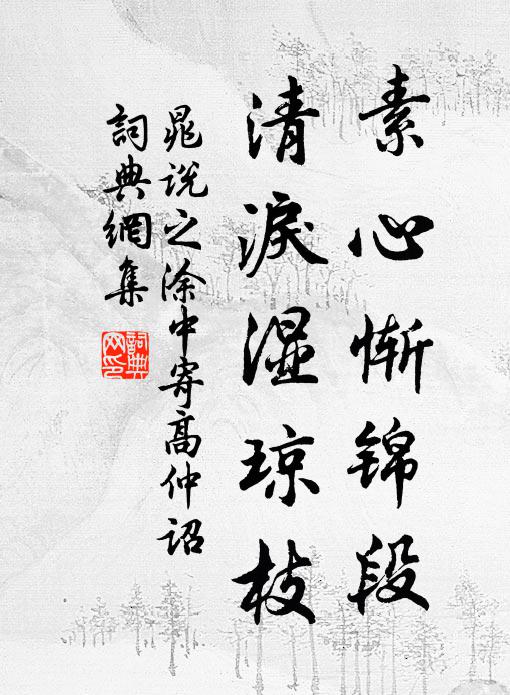 素心惭锦段
清淚湿琼枝
晁说之涂中寄高仲诏
詞典網集
詞典網印